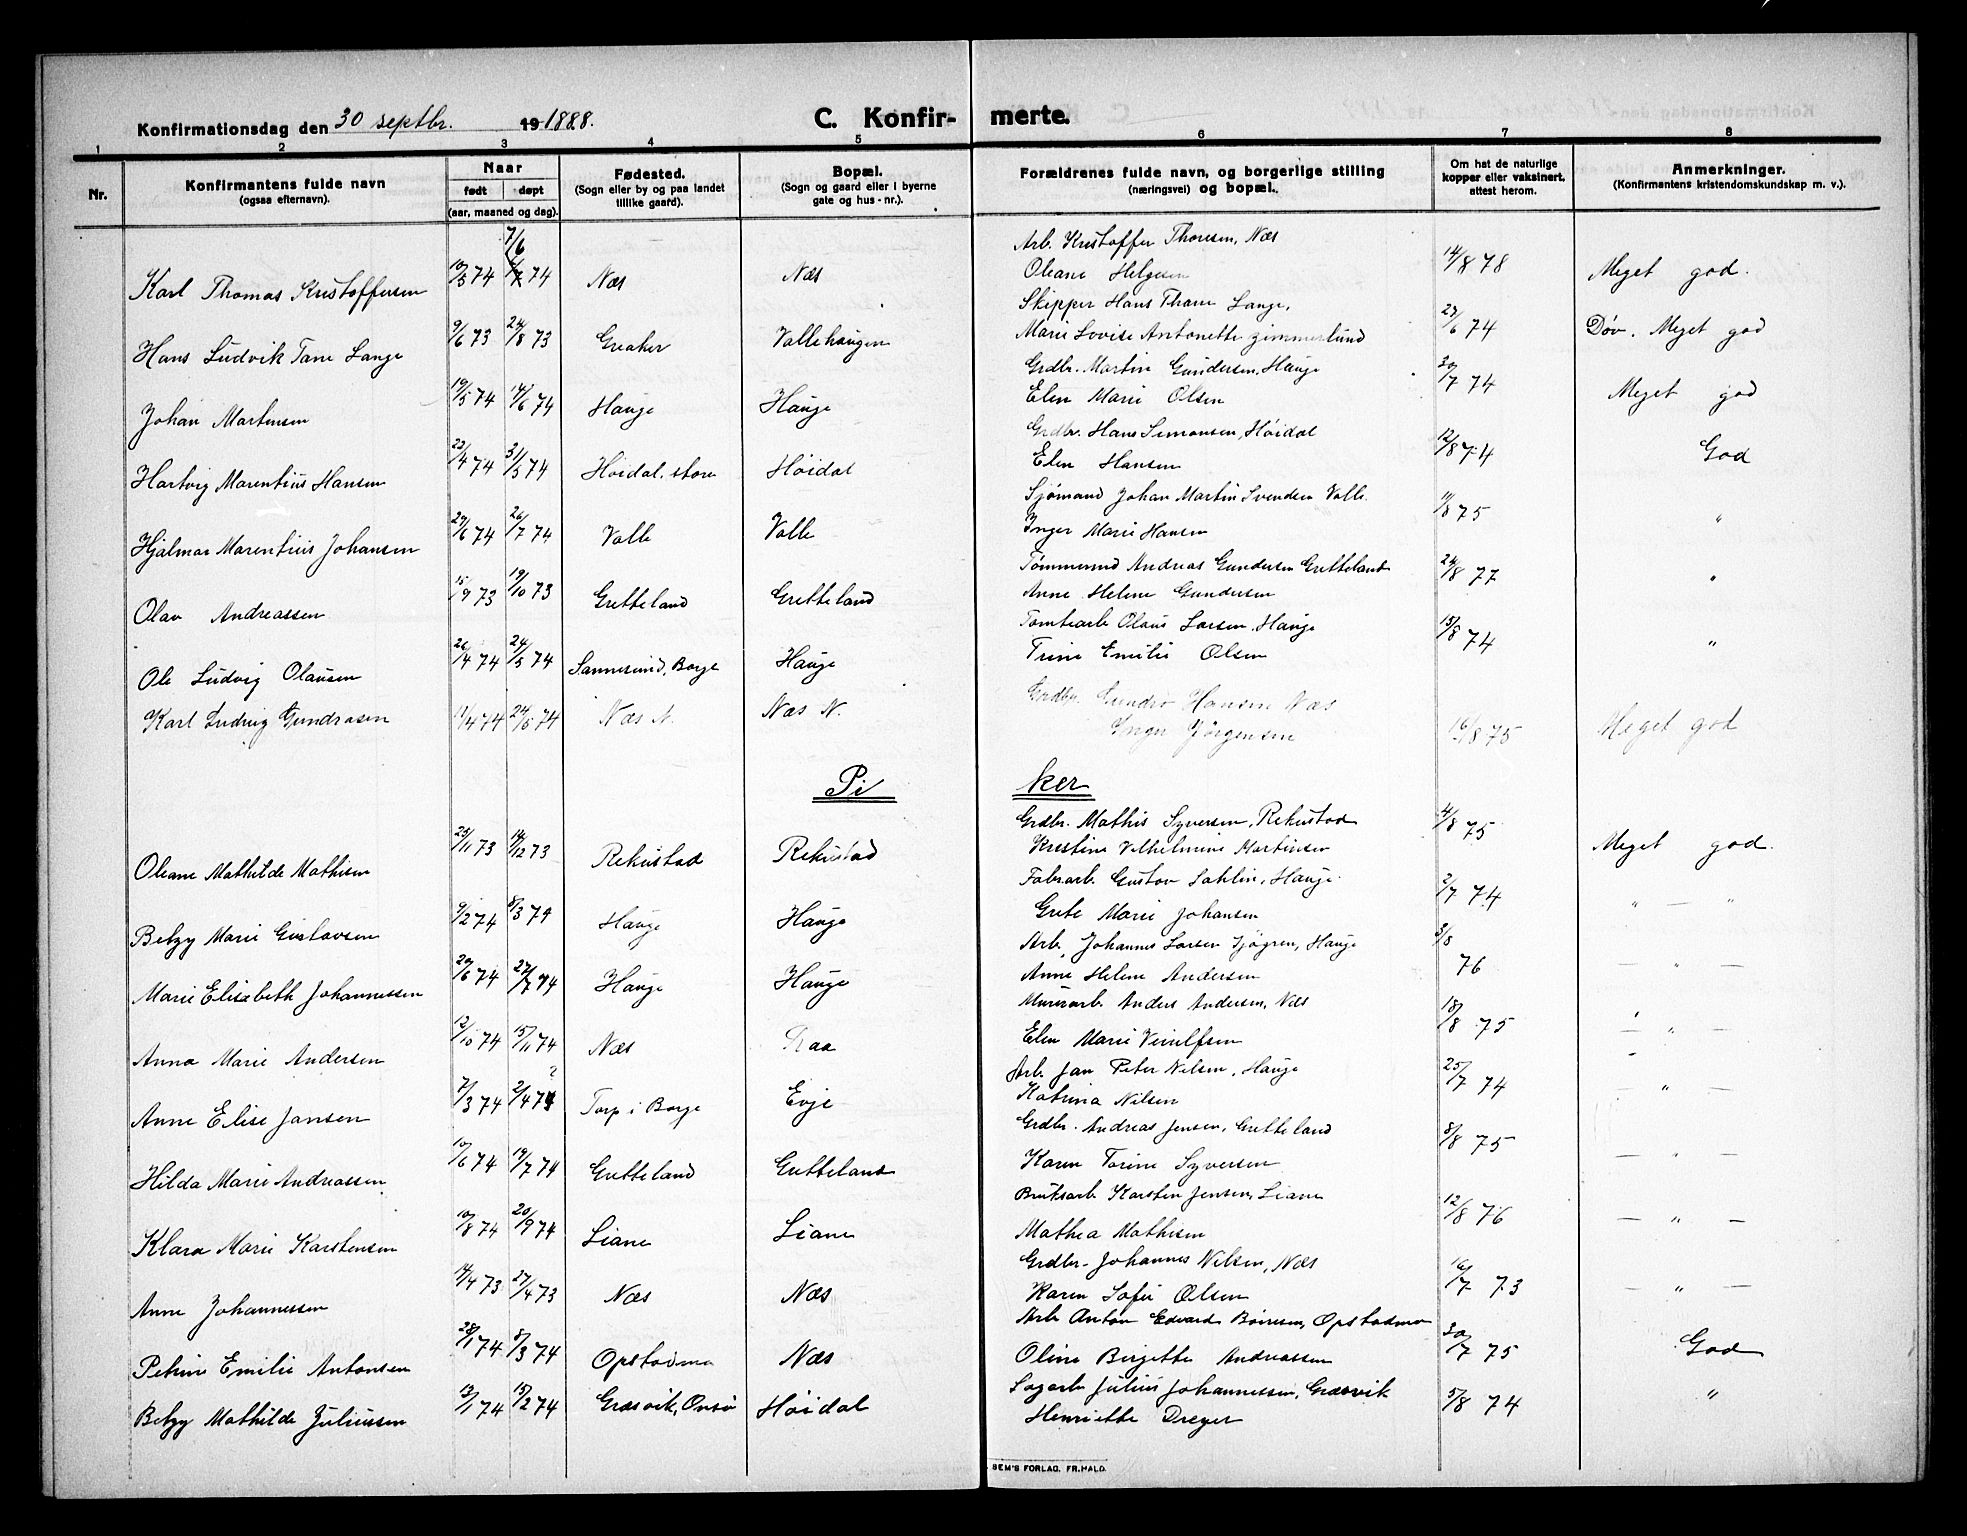 Konfirmationsdag den 30 septbr. 19 1888.
C. Konfirmerte.
1 2 3 4 5 6 7 8
Nr.
Konfirmantens fulde navn
(ogsaa efternavn).
Naar
født døpt
(aar, maaned og dag).
Fødested.
(Sogn eller by og paa landet
tillike gaard).
Bopæl.
(Sogn og gaard eller i byerne
gate og hus-nr.).
Forældrenes fulde navn, og borgerlige stilling
(næringsvei) og bopæl.
Om hat de naturlige
kopper eller vaksinert,
attest herom.
Anmerkninger.
(Konfirmantens kristendomskundskap m. v.).
Karl Thomas Kristoffersen 10/5 74 7/6 74 Næs Næs Arb. Kristoffer Thoresen, Næs
Oleane Helgesen 14/8 78 Meget god.
Hans Ludvik Tane Lange 9/6 73 24/8 73 Greaker Vallehaugen Skipper Hans Thane Lange,
Marie Lovise Antonette Zimmerlund 23/6 74 Døv. Meget god
Johan Martensen 19/5 74 14/6 74 Hauge Hauge Grdbr. Martin Gundersen, Hauge
Elen Marie Olsen 30/7 74 Meget god
Hartvig Marentius Hansen 22/4 74 31/5 74 Høidal, store Høidal Grdbr. Hans Simonsen, Høidal
Elen Hansen 12/8 74 God
Hjalmar Marentius Johansen 29/6 74 26/7 74 Valle Valle Sjømand Johan Martin Svendsen Valle.
Inger Marie Hansen 11/8 75 "
Olav Andreassen 15/9 73 19/10 73 Gretteland Gretteland Tømmermd Andreas Gundersen Gretteland
Anne Helene Gundersen 24/8 77 "
Ole Ludvig Olausen 26/4 74 24/5 74 Sannesund, Borge Hauge Tomtearb. Olaus Larsen, Hauge
Trine Emilie Olsen 15/8 74 "
Karl Ludvig Gundrosen 11/4 74 24/5 74 Næs N. Næs N. Grdbr. Gundro Hansen Næs
Inger Jørgensen 16/8 75 Meget god
Piker
Oleane Mathilde Mathisen 23/11 73 14/12 73 Rekustad Rekustad Grdbr. Mathis Syversen, Rekustad
Kristine Vilhelmine Martinsen 4/8 75 Meget god.
Betzy Marie Gustavsen 9/2 74 8/3 74 Hauge Hauge Fabrarb. Gustav Sahlin, Hauge.
Grete Marie Johansen 2/7 74 " — "
Marie Elisabeth Johannessen 20/6 74 27/7 74 Hauge Hauge Arb. Johannes Larsen Sjøgren, Hauge
Anne Helene Andersen 3/8 76 — " —
Anna Marie Andersen 12/10 74 15/11 74 Næs Raa Murerarb. Anders Andersen, Næs
Elen Marie 18/8 75 — " —
Anne Elise Jansen 7/3 74 2/4 74 ? Torp i Borge Evje Arb. Jan Peter Nilsen, Hauge
Katrina Nilsen 25/7 74 — " —
Hilda Marie Andreassen 10/6 74 19/7 74 Gretteland Gretteland Grdbr. Andreas Jensen, Gretteland
Karen Torine Syversen 8/8 75 — " —
Klara Marie Karstensen 10/8 74 20/9 74 Liane Liane Bruksarb. Karsten Jensen, Liane
Mathea Mathisen 12/8 76 — " —
Anne Johannessen 14/4 73 27/4 73 Næs Næs Grdbr. Johannes Nilsen, Næs
Karen Sofie Olsen 16/7 73 — " —
Petrine Emilie Antonsen 28/1 74 8/3 74 Opstadmo Næs Arb. Anton Edvard Børresen, Opstadmo
Oline Birgette Andreassen 30/7 75 God
Betzy Mathilde Juliussen 13/1 74 15/2 74 Græsvik, Onsø Høidal Sagarb. Julius Johannessen, Græsvik
Henriette Dreyer 5/8 74 "
SEM'S FORLAG, FR.HALD.